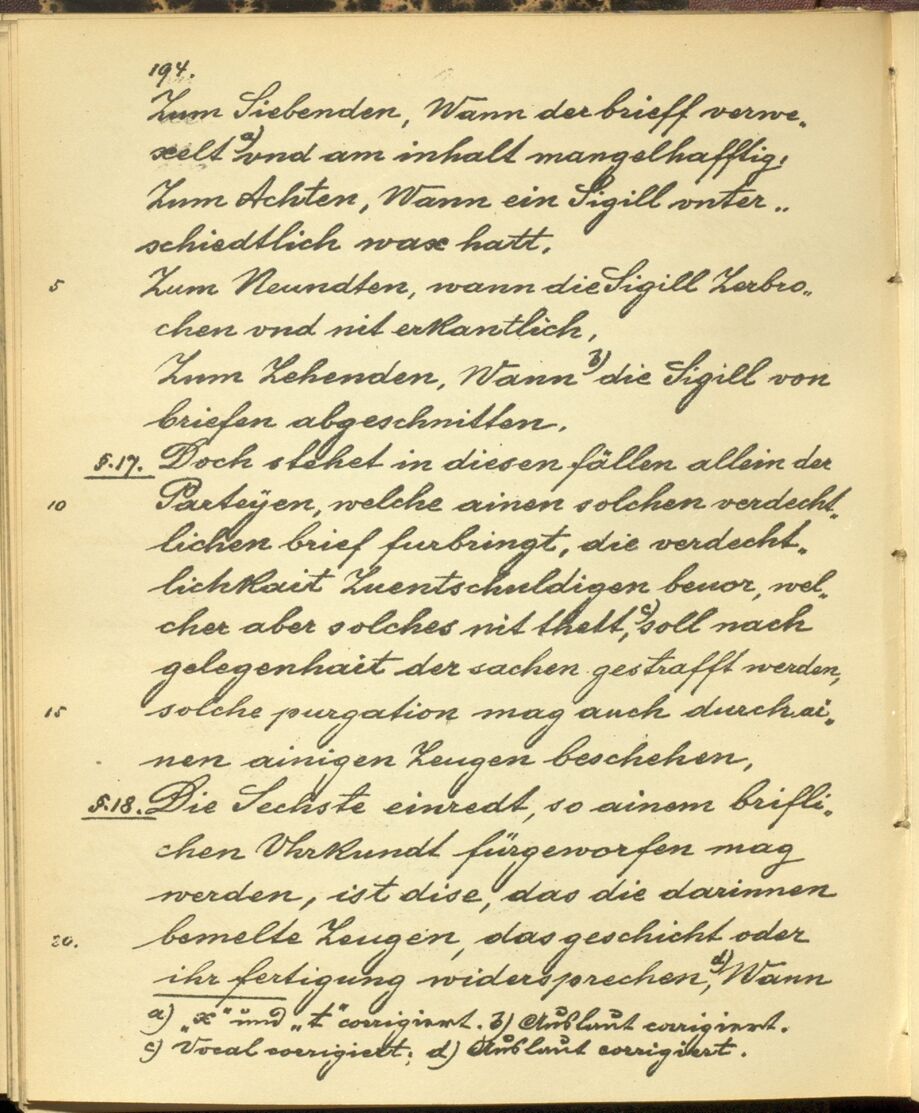 194.
Zum Siebenden, Wann der brieff verwe„
xelt a) vnd am inhalt mangelhafftig,
Zum Achten, Wann ein Sigill vnter„
schiedtlich wax hatt,
5 Zum Neundten, wann die Sigill Zerbro„
chen vnd nit erkantlich,
Zum Zehenden, Wann b) die Sigill von
briefen abgeschnitten.
§.17. Doch stehet in diesen fällen allein der
10 Parteÿen, welche ainen solchen verdecht„
lichen brief furbringt, die verdecht„
lichkait Zuentschuldigen beuor, wel„
cher aber solches nit thett, c) soll nach
gelegenhait der sachen gestrafft werden,
15 solche purgation mag auch durch ai„
nen ainigen Zeugen beschehen,
§.18. Die Sechste einredt, so ainem brifli„
chen Vhrkundt fürgeworfen mag
werden, ist dise, das die darinnen
20. bemelte Zeugen, das geschicht oder
ihr fertigung widersprechen, d) Wann
a) „x“ und „t“ corrigiert. b) Auslaut corrigiert.
c) Vocal corrigiert; d) Auslaut corrigiert.